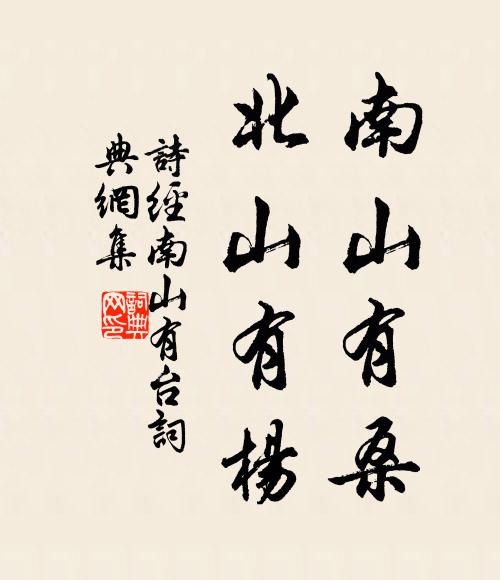 南山有桑
北山有楊
詩經南山有台詞
典網集
詞典
网印